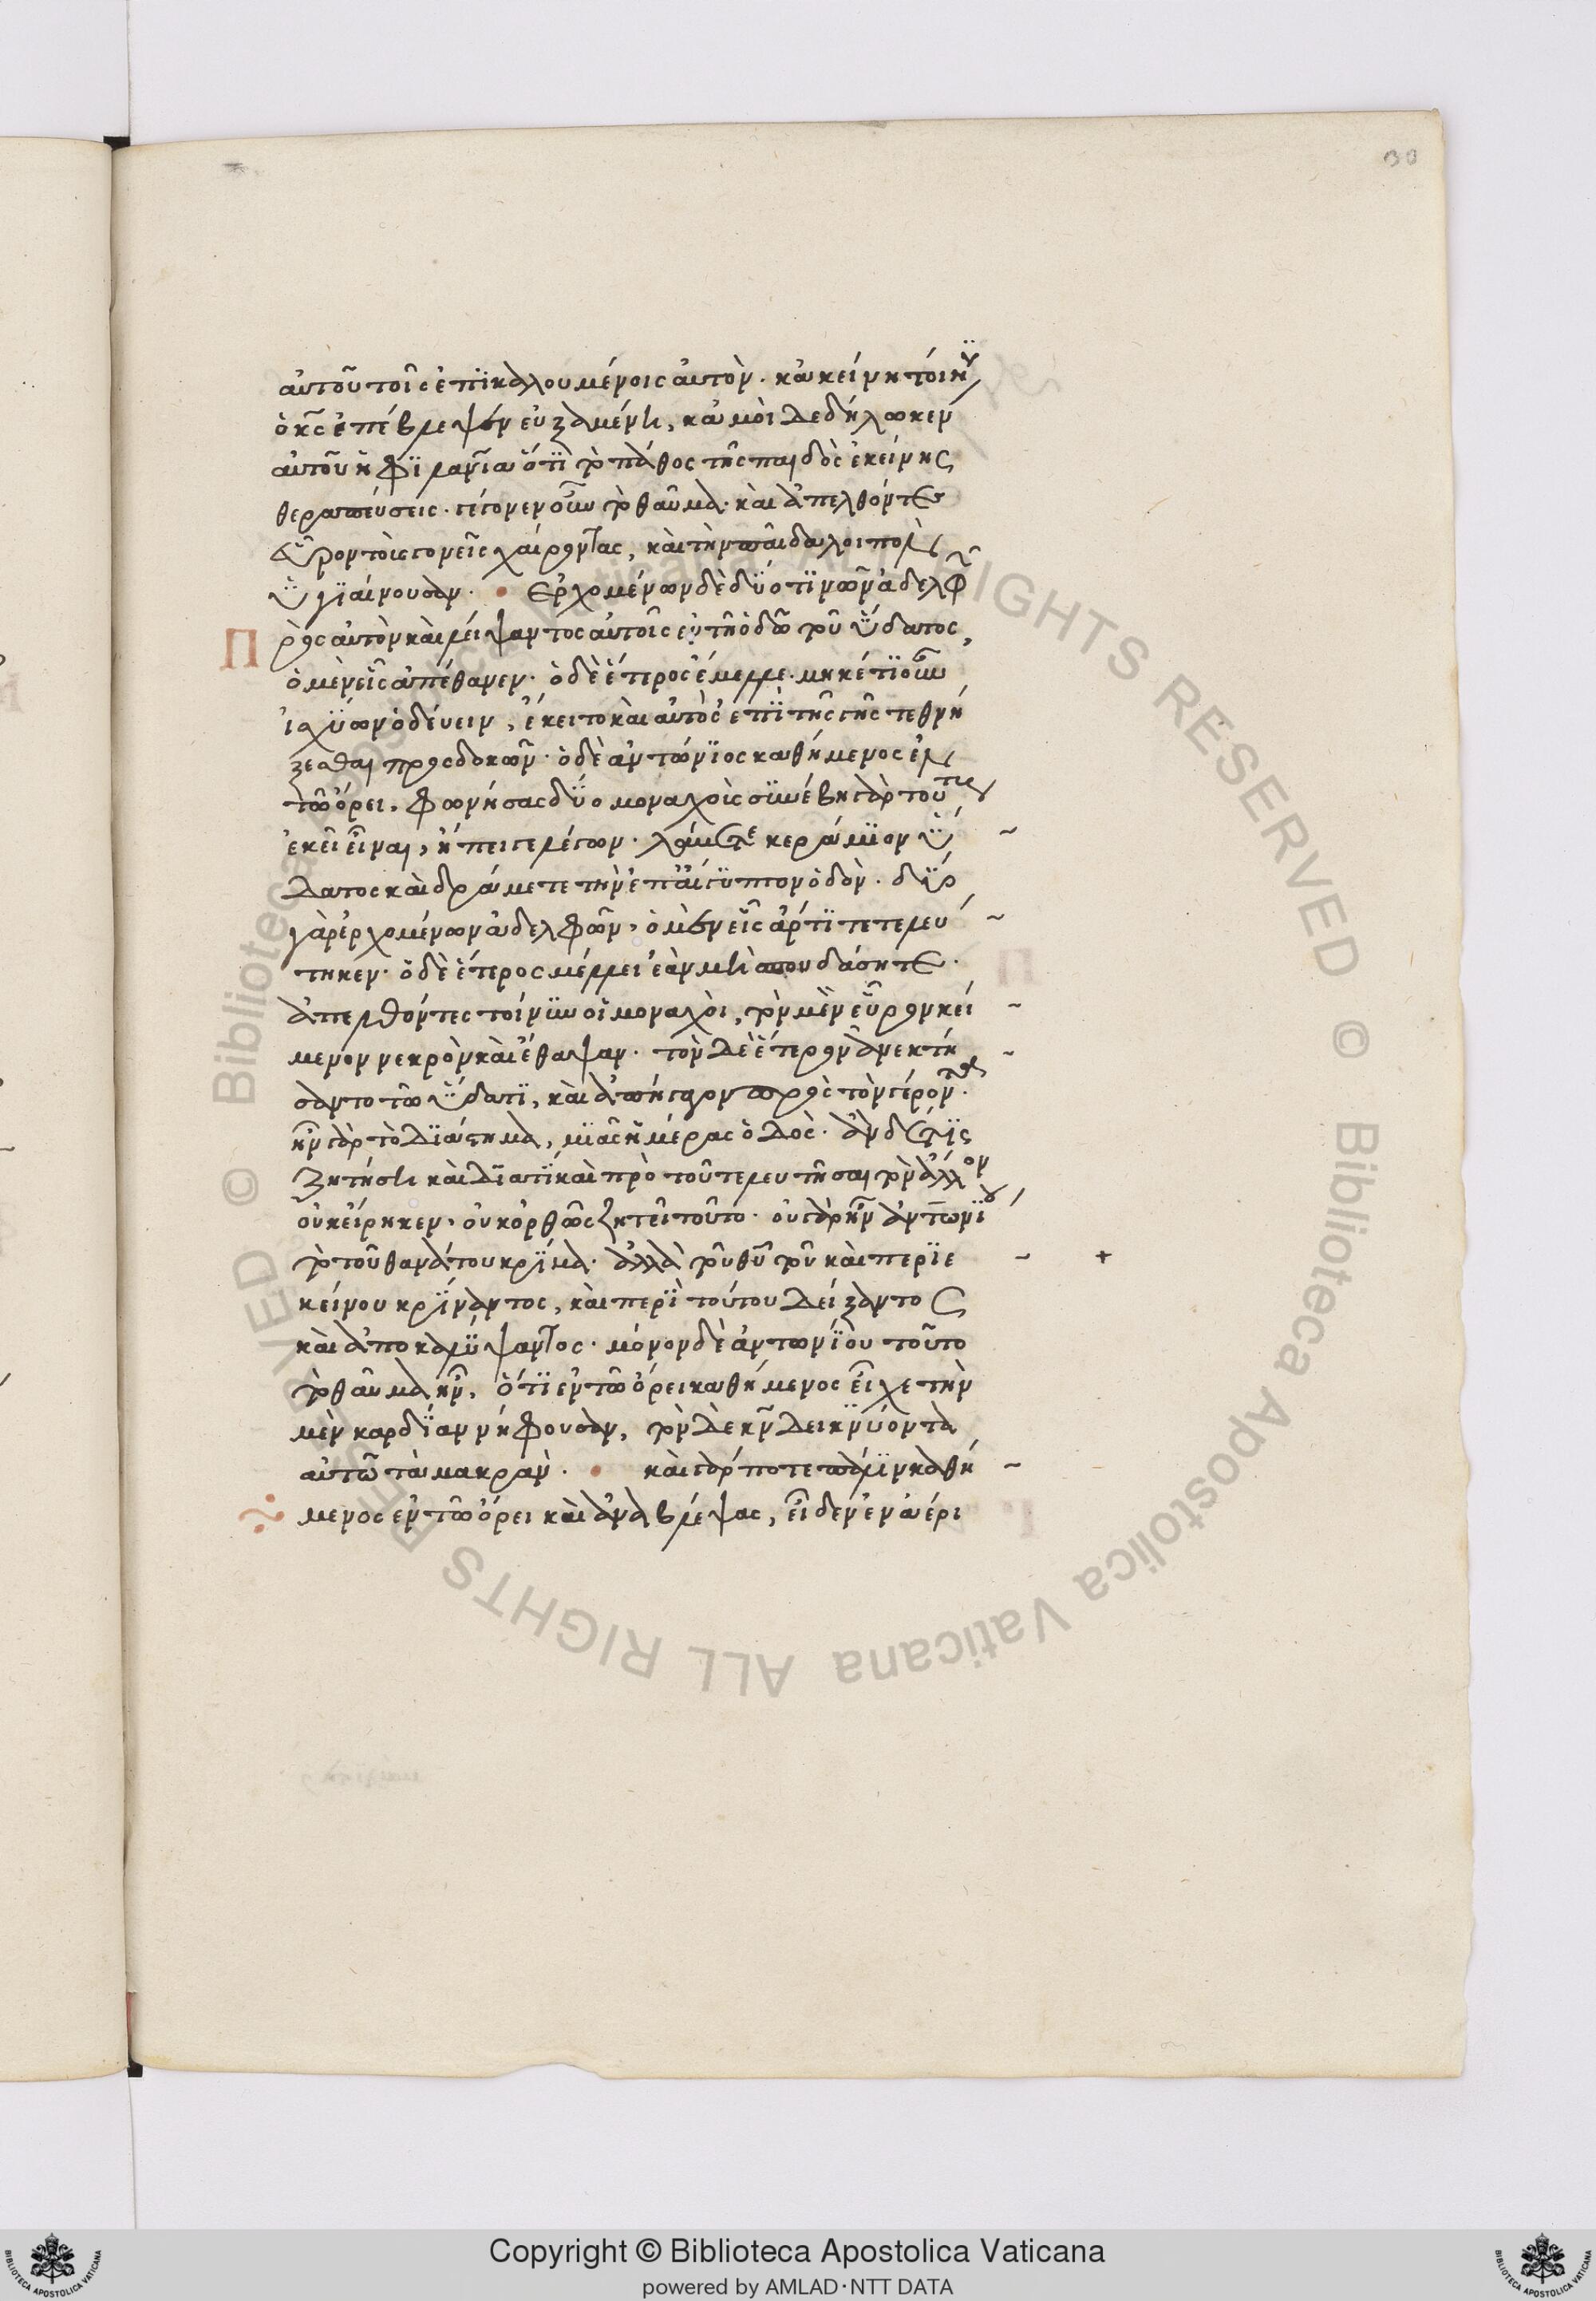 30
αὐτοῦ τοῖς ἐπϊκαλουμένοις αὐτὸν. κἀκείνη τοίνϋ
ὁ κ̅ς ἐπέβλεψεν εὐξαμένη, κἀμοὶ δεδήλωκεν
αὐτοῦ ἡ φϊλανϊα ὅτϊ τὸ πάθος τῆς παιδὸς ἐκείνης
θεραπεύσεις. γέγονεν οὖν τὸ θαῦμα. καὶ ἀπελθόντες
εὗρον τοὺς γονεῖς χαίροντας, καὶ τὴν παῖδα λοιπὸν
ϋγϊαίνουσαν. Ἐρχομένων δὲ δϋό τϊνῶν ἀδελφῶ
Πρὸς αὐτὸν καὶ λείψαντος αὐτοῖς ἐν τῆ ὁδῶ τοῦ ὕδατος,
ὁ μὲν εἷς ἀπέθανεν. ὁ δὲ ἕτερος ἔμελλε. μηκέτϊ οὖν
ἰσχϋων ὁδεύειν, ἔκειτο καὶ αὐτὸς ἐπϊ τῆς γῆς τεθνή
ξεσθαι προσδοκῶν. ὁ δὲ ἀντώνϊος καθήμενος ἐν
τῶ ὄρει, φωνήσας δϋο μοναχοὺς σϋνέβη γὰρ τούτους
ἐκεῖ εἶναι, ἤπειγε λέγων. λάβετε κεράμϊον ὕ
δατος καὶ δράμετε τὴν ἐπ' αἴγϋπτον ὁδὸν. δϋο
γὰρ ἐρχομένων ἀδελφῶν, ὁ μὲν εἷς ἄρτϊ τετελεύ
τηκεν. ὁ δὲ ἕτερος μέλλει ἐὰν μὴ σπουδάσητε.
ἀπελθόντες τοίνϋν οἱ μοναχοὶ, τὸν μὲν εὗρον κεί
μενον νεκρὸν καὶ ἔθαψαν. τὸν δὲ ἕτερον ἀνεκτή
σαντο τῶ ὕδατϊ, καὶ ἀπήγαγον πρὸς τὸν γέροντα.
ἦν γὰρ τὸ δϊάστημα, μϊᾶς ἡμέρας ὁδὸς. ἂν δέ τϊς
ζητήση καὶ δϊατϊ καὶ πρὸ τοῦ τελευτῆσαι τὸν ἄλλον
οὐκ εἴρηκεν, οὐκ ὀρθῶς ζητεῖ τοῦτο. οὐ γὰρ ἦν ἀντωνϊου
τὸ τοῦ θανάτου κρϊμα. ἀλλὰ τοῦ θ̅υ τοῦ καὶ περϊ ἐ
κείνου κρϊναντος, καὶ περϊ τούτου δείξαντος
καὶ ἀποκαλϋψαντος. μόνον δὲ ἀντωνϊου τοῦτο
τὸ θαῦμα ἦν, ὅτϊ ἐν τῶ ὄρει καθήμενος εἶχε τὴν
μὲν καρδϊαν νήφουσαν, τὸν δὲ κ̅ν δεικνϋοντα
αὐτῶ τὰ μακρὰν. καὶ γάρ ποτε πάλϊν καθή
μενος ἐν τῶ ὄρει καὶ ἀναβλέψας, εἶδεν ἐν ἀέρι
Copyright © Biblioteca Apostolica Vaticana
powered by AMLAD·NTT DATA